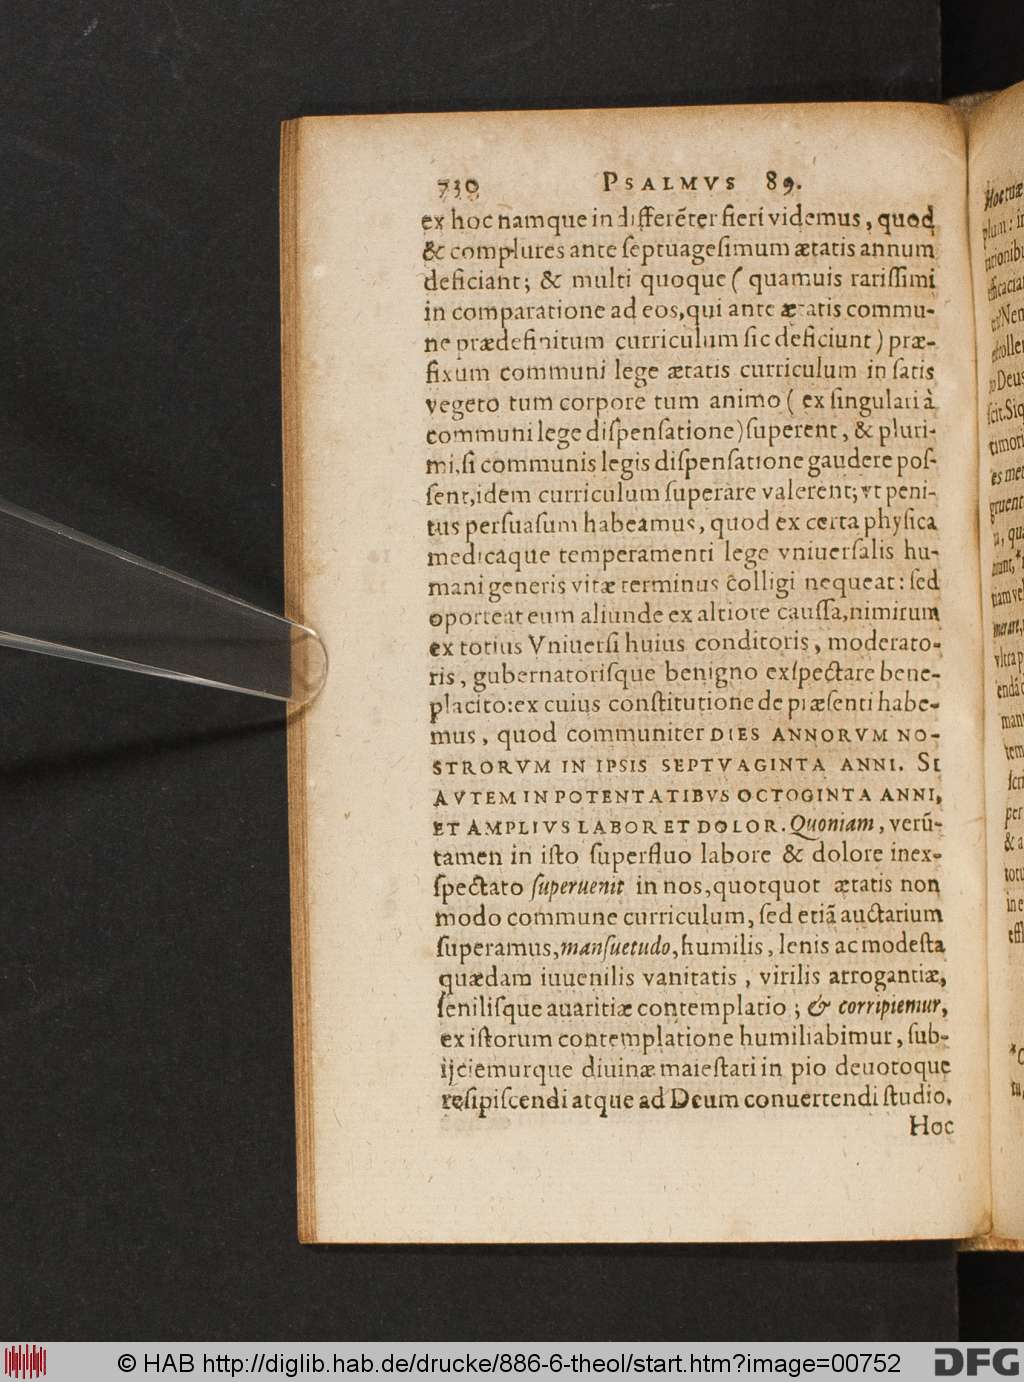 730 PSALMVS 89.
ex hoc namque indifferẽter fieri videmus, quod
& complures ante ſeptuageſimum ætatis annum
deficiant; & multi quoque ( quamuis rariſſimi
in comparatione ad eos, qui ante ætatis commu-
ne prædefinitum curriculum ſic deficiunt) præ-
fixum communi lege ætatis curriculum in ſatis
vegeto tum corpore tum animo ( ex ſingulari à
communi lege diſpenſatione) ſuperent, & pluri-
mi, ſi communis legis diſpenſatione gaudere poſ-
ſent, idem curriculum ſuperare valerent; vt peni-
tus perſuaſum habeamus, quod ex certa phyſica
medicaque temperamenti lege vniuerſalis hu-
mani generis vitæ terminus colligi nequeat: ſed
oporteat eum aliunde ex altiore cauſſa, nimirum
ex totius Vniuerſi huius conditoris, moderato-
ris, gubernatoriſque benigno exſpectare bene-
placito: ex cuius conſtitutione de præſenti habe-
mus, quod communiter DIES ANNORVM NO-
STRORVM IN IPSIS SEPTVAGINTA ANNI. SI
AVTEM IN POTENTATIBVS OCTOGINTA ANNI,
ET AMPLIVS LABOR ET DOLOR. Quoniam, verũ-
tamen in iſto ſuperfluo labore & dolore inex-
ſpectato ſuperuenit in nos, quotquot ætatis non
modo commune curriculum, ſed etiã auctarium
ſuperamus, manſuetudo, humilis, lenis ac modeſta
quædam iuuenilis vanitatis, virilis arrogantiæ,
ſeniliſque auaritiæ contemplatio; & corripiemur,
ex iſtorum contemplatione humiliabimur, ſub-
ijciemurque diuinæ maieſtati in pio deuotoque
reſipiſcendi atque ad Deum conuertendi ſtudio.
Hoc
© HAB http://diglib.hab.de/drucke/886-6-theol/start.htm?image=00752
DFG